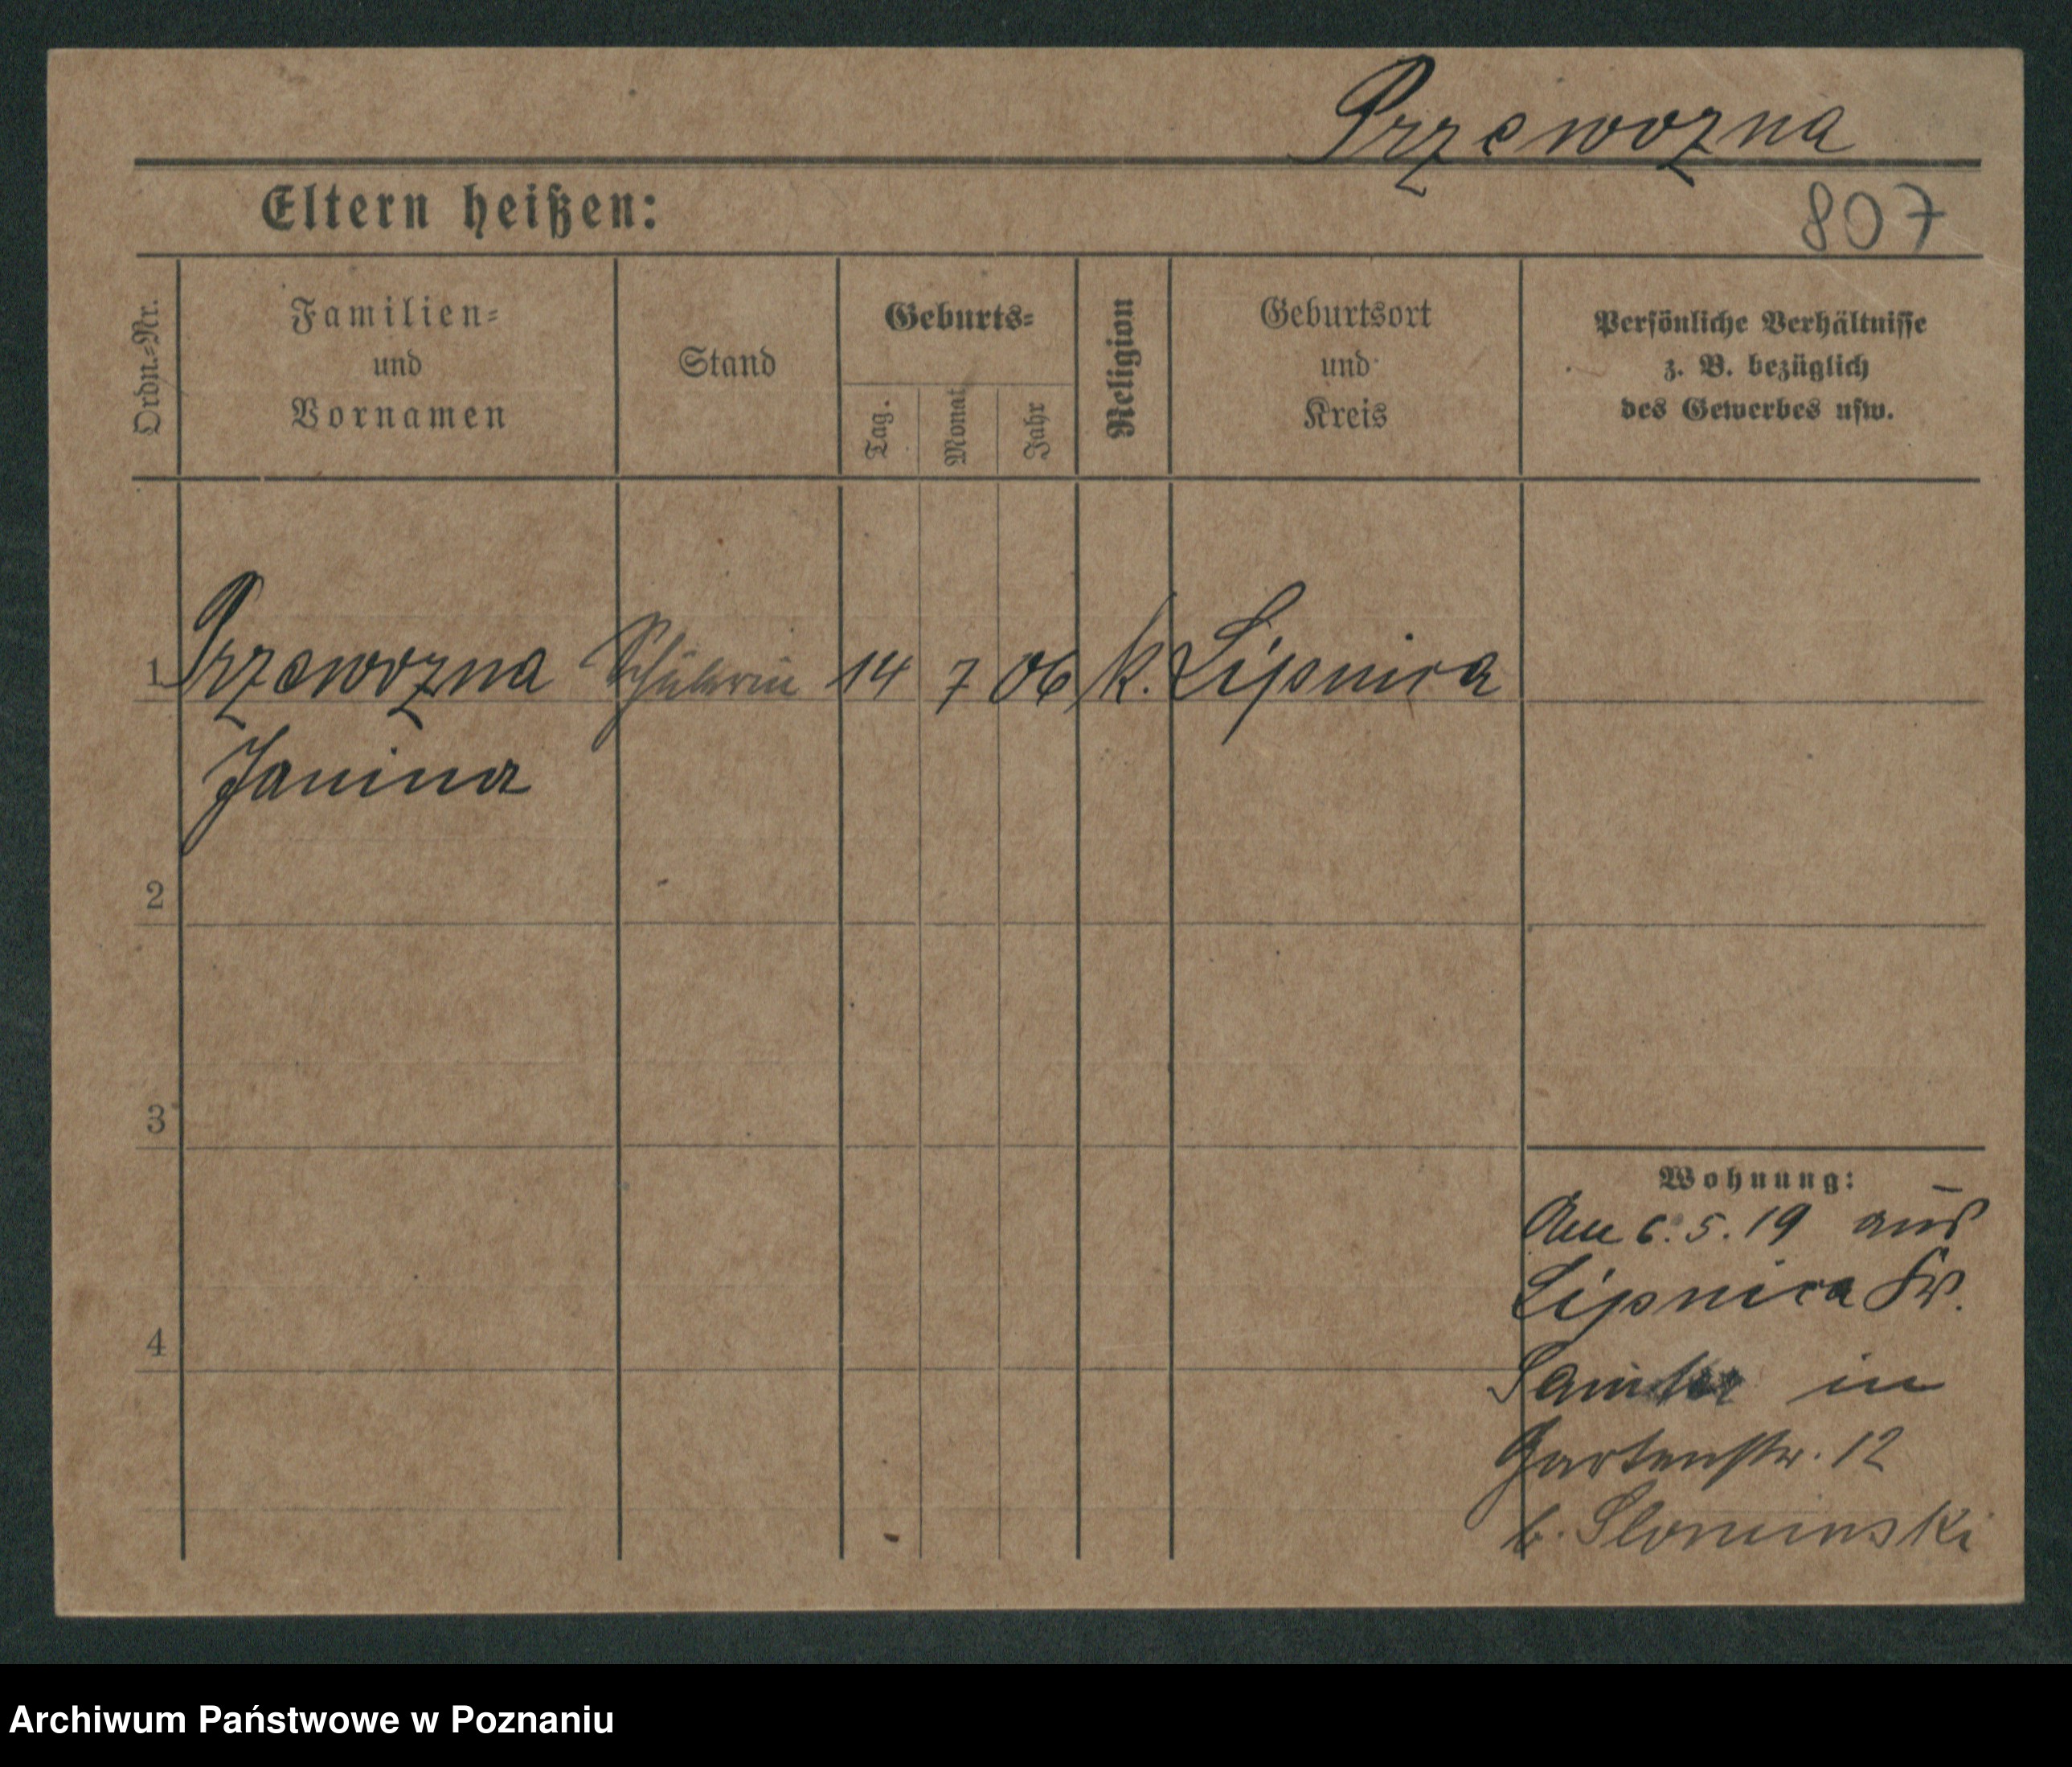 Przewozna
Eltern heißen:
807
Ordn.-Nr.
Familien-
und
Vornamen
Stand
Geburts-
Tag.
Monat
Jahr
Religion
Geburtsort
und
Kreis
Persönliche Verhältnisse
z. B. bezüglich
des Gewerbes usw.
1 Przewozna Schülerin 14 7 06 k. Lipnica
Janina
2
3
4
Wohnung:
Am 6.5.19 aus
Lipnica Kr.
Samter in
Gartenstr. 12
b. Slominski
Archiwum Państwowe w Poznaniu